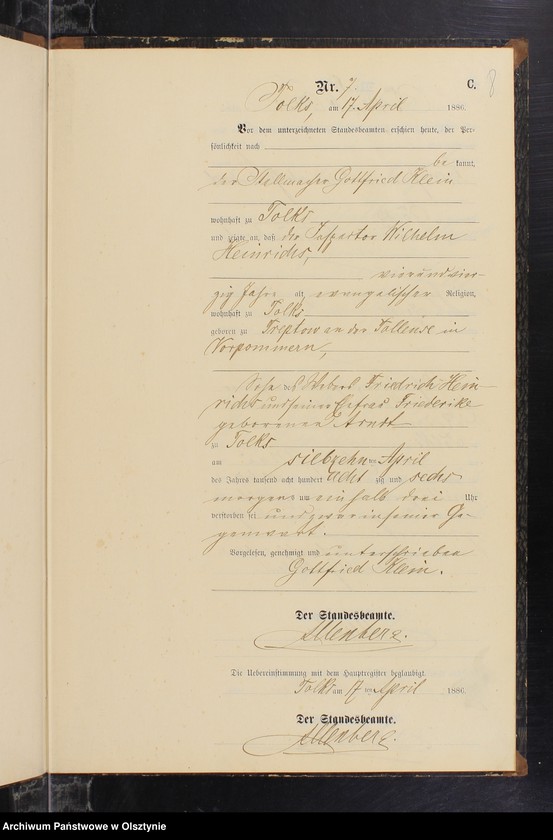 8
Nr. 7. C.
Tolks, am 17. April 1886.
Vor dem unterzeichneten Standesbeamten erschien heute, der Per-
sönlichkeit nach
be kannt,
der Stellmacher Gottfried Klein
wohnhaft zu Tolks
und zeigte an, daß der Inspektor Wilhelm
Heinrichs,
vierundvier-
zig Jahre alt, evangelischer Religion,
wohnhaft zu Tolks
geboren zu Treptow an der Tollense in
Vorpommern,
Sohn des Webers Friedrich Hein-
richs und seiner Ehefrau Friederike
geborenen Arndt
zu Tolks
am siebzehnten April
des Jahres tausend acht hundert acht zig und sechs
morgens um ein halb drei Uhr
verstorben sei und zwar in seiner Ge-
genwart.
Vorgelesen, genehmigt und unterschrieben
Gottfried Klein.
Der Standesbeamte.
Die Uebereinstimmung mit dem Hauptregister beglaubigt.
Tolks am 17ten April 1886.
Der Standesbeamte.
Archiwum Państwowe w Olsztynie